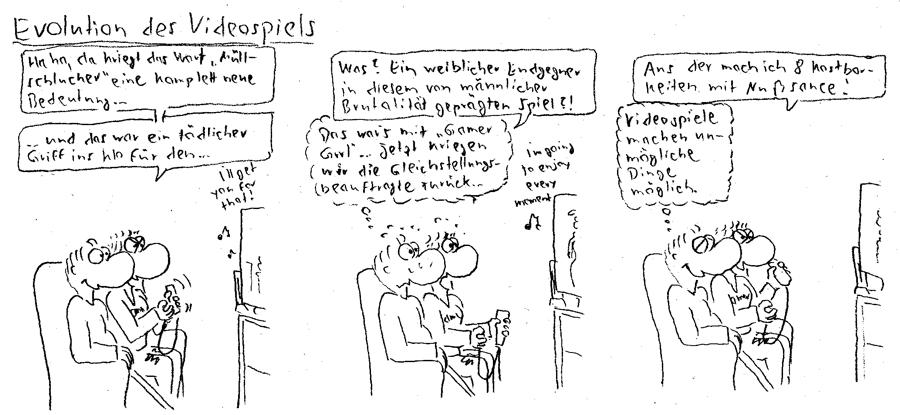 Evolution des Videospiels
Haha, da kriegt das Wort „Müll-
schlucker" eine komplett neue
Bedeutung...
... und das war ein tödlicher
Griff ins Klo für den...
I'll get
you for
that!
Was? Ein weiblicher Endgegner
in diesem von männlicher
Brutalität geprägten Spiel?!
Das war's mit „Gamer
Girl"... jetzt kriegen
wir die Gleichstellungs-
beauftragte zurück...
I'm going
to enjoy
every
moment
Aus der mach ich 8 Kostbar-
keiten mit Nußsauce!
Videospiele
machen un-
mögliche
Dinge
möglich.